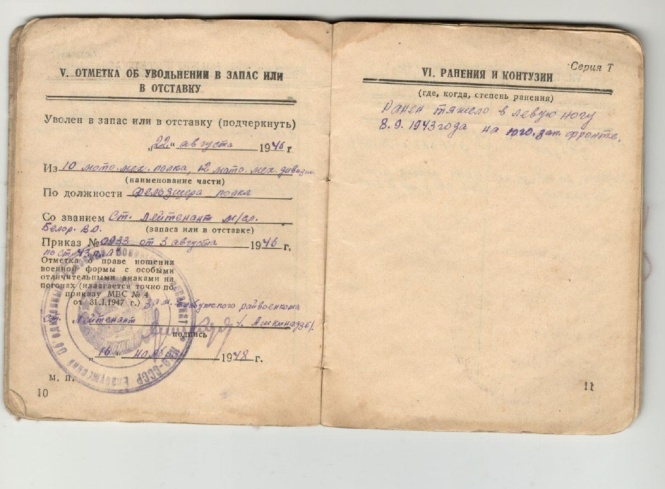 V. ОТМЕТКА ОБ УВОЛЬНЕНИИ В ЗАПАС ИЛИ
В ОТСТАВКУ
Уволен в запас или в отставку (подчеркнуть)
„22“ августа 1946 г
Из 10 мото мех. полка, 12 мото мех. дивизии
(наименование части)
По должности фельдшера полка
Со званием Ст. лейтенант м/сл.
(запаса или в отставке)
Белор. В.О.
Приказ № 0233 от 5 августа 1946 г.
по ст. 43
Отметка о праве ношения
военной формы с особыми
отличительными знаками на
погонах (излагается точно по
приказу МВС № 4
от 31.I.1947 г.) Зам. райвоенкома
Ст. лейтенант
подпись
„16“ 1948 г.
М. П.
10
Серия Т
VI. РАНЕНИЯ И КОНТУЗИИ
(где, когда, степень ранения)
Ранен тяжело в левую ногу
8.9.1943 года на юго. зап. фронте.
11